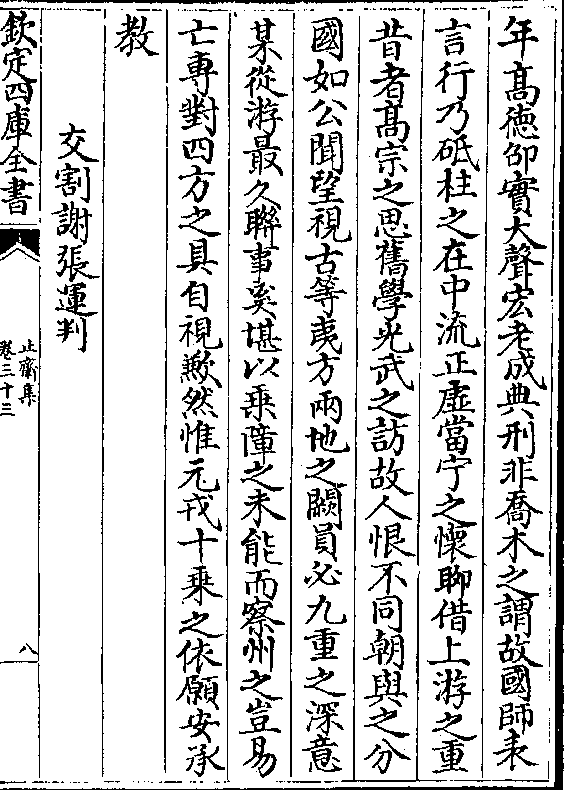 年髙徳卲實大聲宏老成典刑非喬木之謂故國師表
言行乃砥柱之在中流正虛當宁之懷聊借上游之重
昔者髙宗之思舊學光武之訪故人恨不同朝與之分
國如公聞望視古等夷方兩地之闕員必九重之深意
某從游最久聯事奚堪以乗障之未能而察州之豈易
亡專對四方之具自視歉然惟元戎十乗之依願安承
教
交割謝張運判
欽定四庫全書
止齋集
卷三十三
八